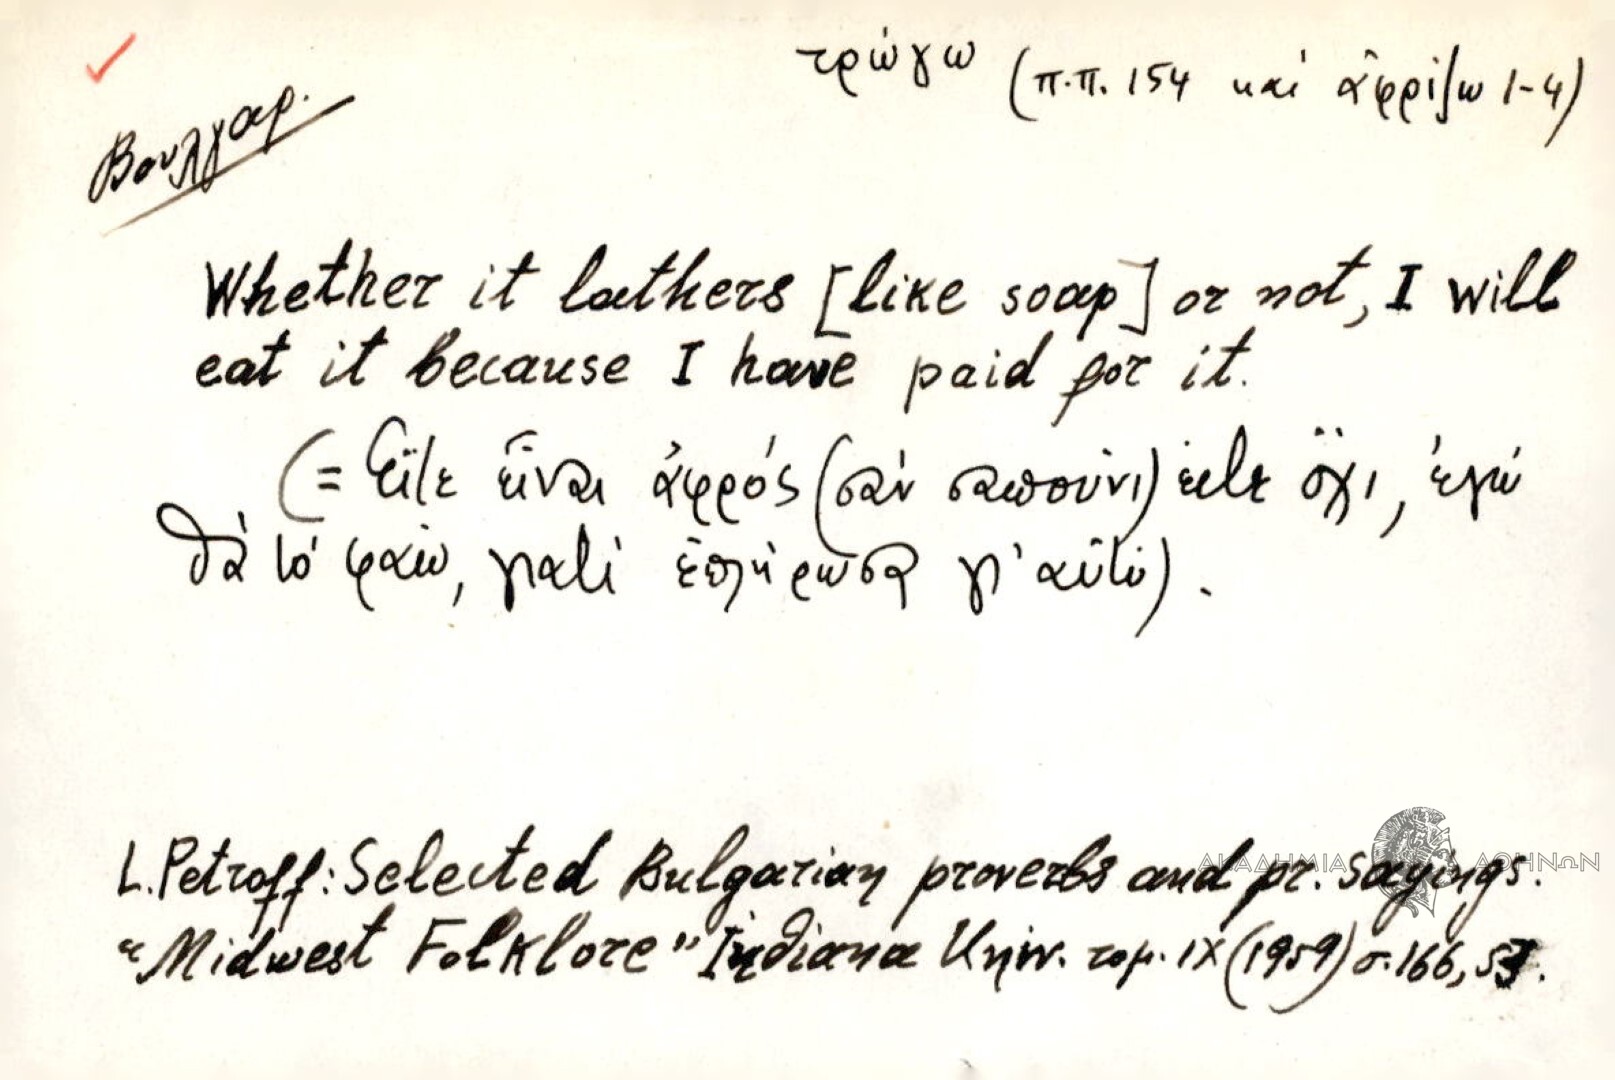 τρώγω (π.π. 154 καί ἀφρίζω 1-4)
Βουλγαρ.
Whether it lathers [like soap] or not, I will
eat it because I have paid for it.
(= Εἴτε εἶναι ἀφρός (σάν σαπούνι) εἴτε ὄχι, ἐγώ
θά τό φάω, γιατί ἐπλήρωσα γι' αὐτό).
L. Petroff: Selected Bulgarian proverbs and pr. sayings.
"Midwest Folklore" Indiana Univ. τομ. IX (1959) σ. 166,
ΑΚΑΔΗΜΙΑ ΑΘΗΝΩΝ